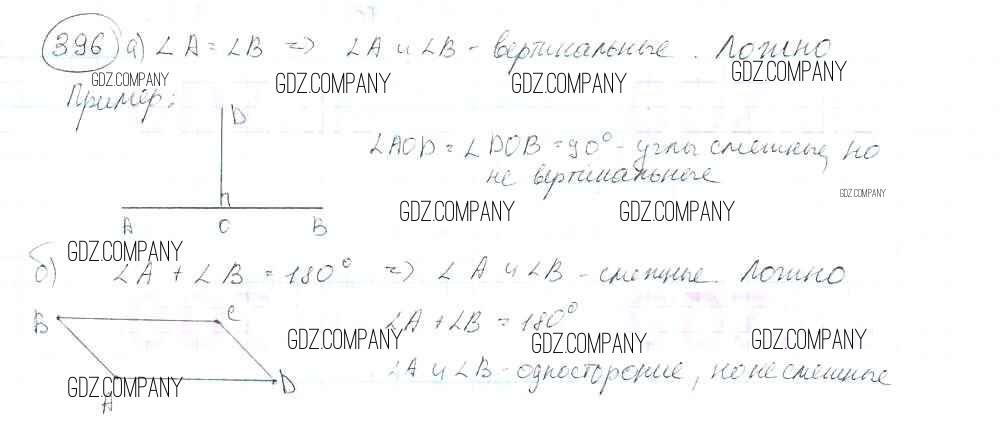 396 а) ∠A = ∠B => ∠A и ∠B - вертикальные. Ложно
GDZ.COMPANY GDZ.COMPANY GDZ.COMPANY GDZ.COMPANY
Пример:
D
∠AOD = ∠DOB = 90° - углы смежные, но
не вертикальные
GDZ.COMPANY
GDZ.COMPANY GDZ.COMPANY
A O B
GDZ.COMPANY
б) ∠A + ∠B = 180° => ∠A и ∠B - смежные. Ложно
B C
∠A + ∠B = 180°
GDZ.COMPANY GDZ.COMPANY GDZ.COMPANY
∠A и ∠B - односторонние, но не смежные
GDZ.COMPANY
A D